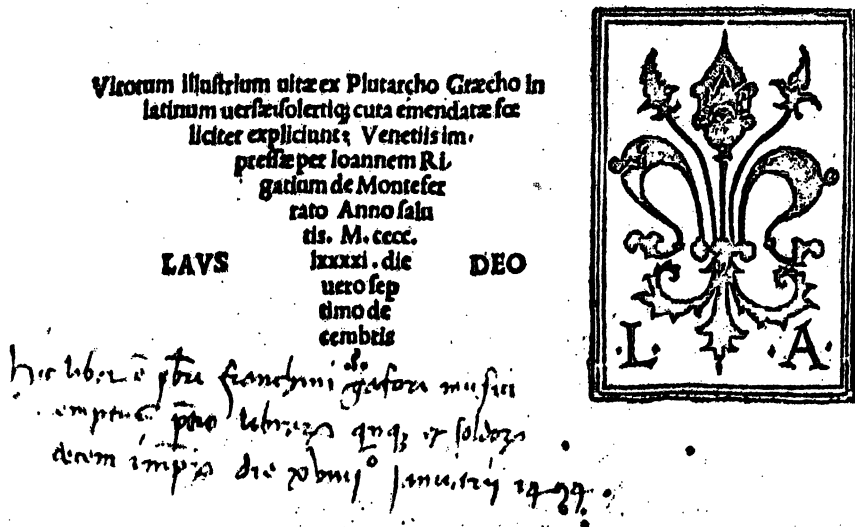 Virorum illustrium uitæ ex Plutarcho Græcho in
latinum uersæ: solertiq; cura emendatæ fœ
liciter expliciunt: Venetiis im-
pressæ per Ioannem Ri-
gatium de Monteser
rato Anno salu
tis. M. cccc.
LAVS lxxxxi. die DEO
uero sep
timo de
cembris
.L. .A.
hic liber ē pbri franchini gafori musici
emptus p̄tio librarꝝ qnqꝫ et soldoꝝ
decem die xviiiiº Januarii 1494.